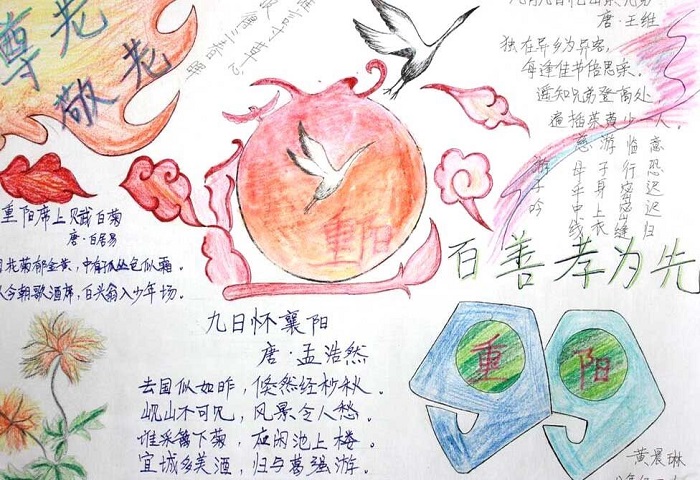 尊老
敬老
寸草心
三春晖
九月九日忆山东兄弟
唐·王维
独在异乡为异客，
每逢佳节倍思亲。
遥知兄弟登高处，
遍插茱萸少一人。
游子吟
慈母手中线
游子身上衣
临行密密缝
意恐迟迟归
重阳
百善孝为先
重阳席上赋白菊
唐·白居易
花菊郁金黄，中有孤丛色似霜。
今朝歌酒席，白头翁入少年场。
九日怀襄阳
唐·孟浩然
去国似如昨，倏然经杪秋。
岘山不可见，风景令人愁。
谁采篱下菊，应闲池上楼。
宜城多美酒，归与葛强游。
重阳
黄晨琳